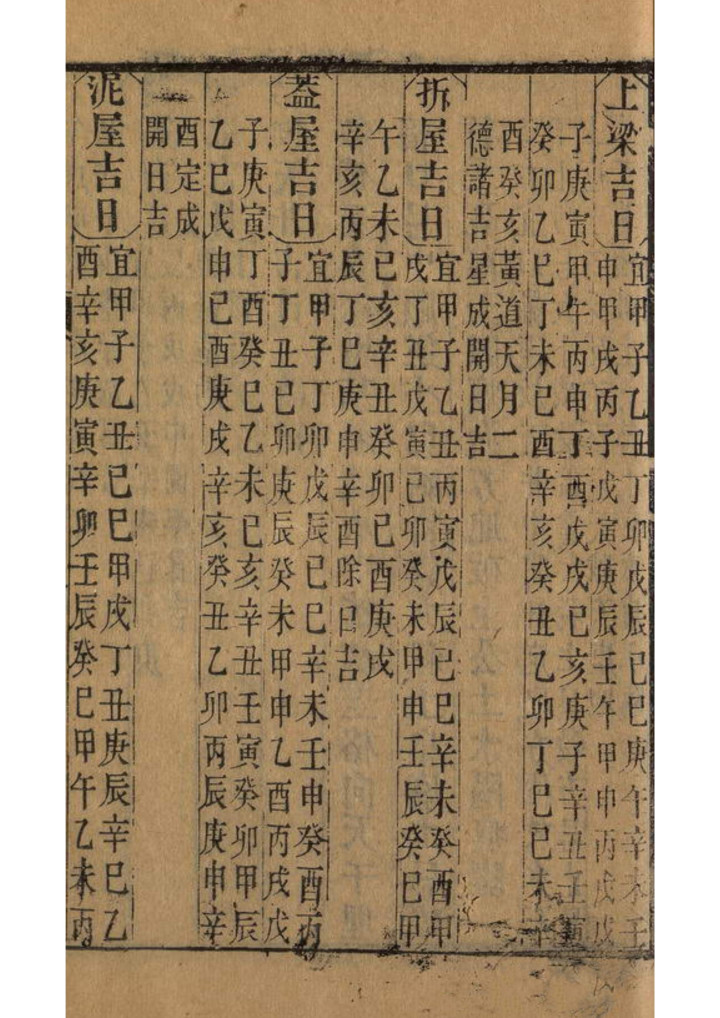 上梁吉日
宜甲子乙丑丁卯戊辰己巳庚午辛未壬
申甲戌丙子戊寅庚辰壬午甲申丙戌戊
子庚寅甲午丙申丁酉戊戌己亥庚子辛丑壬寅
癸卯乙巳丁未己酉辛亥癸丑乙卯丁巳己未辛
酉癸亥黃道天月二
德諸吉星成開日吉
拆屋吉日
宜甲子乙丑丙寅戊辰己巳辛未癸酉甲
戌丁丑戊寅己卯癸未甲申壬辰癸巳甲
午乙未己亥辛丑癸卯己酉庚戌
辛亥丙辰丁巳庚申辛酉除日吉
蓋屋吉日
宜甲子丁卯戊辰己巳辛未壬申癸酉丙
子丁丑己卯庚辰癸未甲申乙酉丙戌戊
子庚寅丁酉癸巳乙未己亥辛丑壬寅癸卯甲辰
乙巳戊申己酉庚戌辛亥癸丑乙卯丙辰庚申辛
酉定成
開日吉
泥屋吉日
宜甲子乙丑己巳甲戌丁丑庚辰辛巳乙
酉辛亥庚寅辛卯壬辰癸巳甲午乙未丙